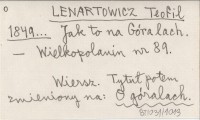 LENARTOWICZ Teofil
1849... Jak to na Góralach.
— Wielkopolanin nr 89.
Wiersz. Tytuł potem
zmieniony na: O góralach.